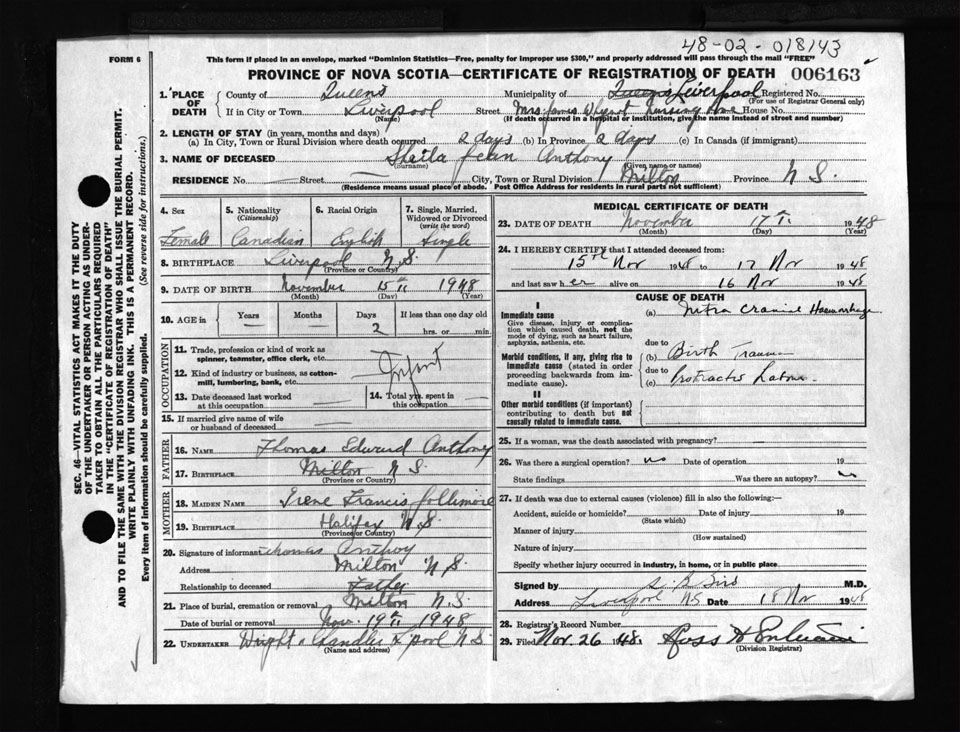 48-02-018143
FORM 6
This form if placed in an envelope, marked "Dominion Statistics—Free, penalty for improper use $300," and properly addressed will pass through the mail "FREE"
PROVINCE OF NOVA SCOTIA—CERTIFICATE OF REGISTRATION OF DEATH 006163
1. PLACE OF DEATH
County of Queens Municipality of Queens Liverpool Registered No.
(For use of Registrar General only)
If in City or Town Liverpool Street Mrs James Nursing Home House No.
(Name) (If death occurred in a hospital or institution, give the name instead of street and number)
2. LENGTH OF STAY (in years, months and days)
(a) In City, Town or Rural Division where death occurred 2 days (b) In Province 2 days (c) In Canada (if immigrant)
3. NAME OF DECEASED Sheila Jean Anthony
(Surname) (Given name or names)
RESIDENCE No. — Street City, Town or Rural Division Milton Province N S.
(Residence means usual place of abode. Post Office Address for residents in rural parts not sufficient)
4. Sex
Female
5. Nationality
(Citizenship)
Canadian
6. Racial Origin
English
7. Single, Married, Widowed or Divorced
(write the word)
Single
8. BIRTHPLACE Liverpool N.S.
(Province or Country)
9. DATE OF BIRTH November 15 th 1948
(Month) (Day) (Year)
10. AGE in
Years
—
Months
—
Days
2
If less than one day old
hrs. or min.
OCCUPATION
11. Trade, profession or kind of work as spinner, teamster, office clerk, etc.
12. Kind of industry or business, as cotton-mill, lumbering, bank, etc.
Infant
13. Date deceased last worked at this occupation —
14. Total yrs. spent in this occupation
15. If married give name of wife or husband of deceased —
FATHER
16. NAME Thomas Edward Anthony
17. BIRTHPLACE Milton N S.
(Province or Country)
MOTHER
18. MAIDEN NAME Irene Francis Jollimore
19. BIRTHPLACE Halifax N.S.
(Province or Country)
20. Signature of informant Thomas Anthony
Address Milton N S.
Relationship to deceased Father
21. Place of burial, cremation or removal Milton N.S.
Date of burial or removal Nov. 19 th 1948
22. UNDERTAKER Wright & Chandler L'pool N S.
(Name and address)
MEDICAL CERTIFICATE OF DEATH
23. DATE OF DEATH November 17 th 1948
(Month) (Day) (Year)
24. I HEREBY CERTIFY that I attended deceased from:
15th Nov 1948 to 17 Nov 1948
and last saw her alive on 16 Nov 1948
CAUSE OF DEATH
I
Immediate cause (a) Intra Cranial Haemorrhage
Give disease, injury or complication which caused death, not the mode of dying, such as heart failure, asphyxia, asthenia, etc.
due to
Morbid conditions, if any, giving rise to immediate cause (stated in order proceeding backwards from immediate cause).
(b) Birth Trauma
due to
(c) Protracted Labour
II
Other morbid conditions (if important) contributing to death but not causally related to immediate cause.
25. If a woman, was the death associated with pregnancy? —
26. Was there a surgical operation? no Date of operation 19
State findings Was there an autopsy? no
27. If death was due to external causes (violence) fill in also the following:—
Accident, suicide or homicide? Date of injury 19
(State which)
Manner of injury
(How sustained)
Nature of injury
Specify whether injury occurred in industry, in home, or in public place
Signed by M.D.
Address Liverpool NS Date 18 Nov 1948
28. Registrar's Record Number
29. Filed Nov. 26 1948.
(Division Registrar)
SEC. 46—VITAL STATISTICS ACT MAKES IT THE DUTY OF THE UNDERTAKER OR PERSON ACTING AS UNDERTAKER TO OBTAIN ALL THE PARTICULARS REQUIRED IN THE "CERTIFICATE OF REGISTRATION OF DEATH" AND TO FILE THE SAME WITH THE DIVISION REGISTRAR WHO SHALL ISSUE THE BURIAL PERMIT.
WRITE PLAINLY WITH UNFADING INK. THIS IS A PERMANENT RECORD.
Every item of information should be carefully supplied. (See reverse side for instructions.)